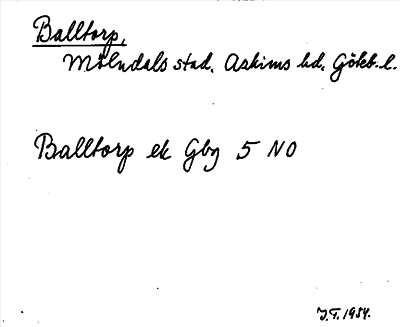 Balltorp,
Mölndals stad. Askims hd. Göteb. l.
Balltorp ek Gbg 5 NO
J.T. 1984.